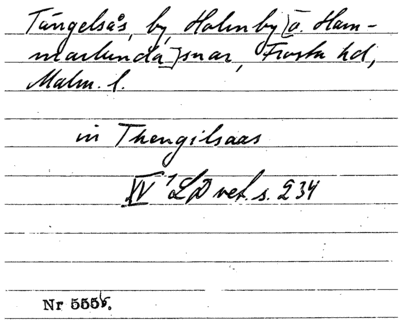 Tängelsås, by, Holmby [o. Ham-
marlunda] snar, Frosta hd,
Malm. l.
in Thengilsaas
XV¹ LD vet. s. 234
Nr 5555.